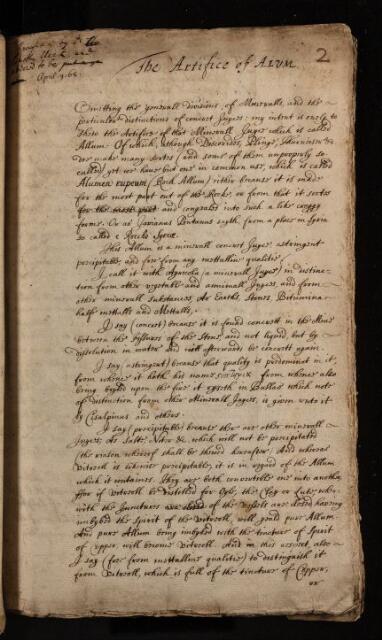 April 9. 62.
2
The Artifice of Alum
Omitting the generall divisions, of Mineralls, and the
particular distinctions of concret Juyces; my intent is onely to
shew the Artifice of that Minerall Juyce which is called
Allum. Of which, although Dioscorides, Pliny,
doe make many sortes (and some of them unproperly so
called) yet we have but one in common use, which is called
Alumen rupeum (Rock Allum) either because it is made
for the most part out of the Rocks, or from that it
for the most part and congeales into such a like
forme. Or as Jovianus Pontanus sayth from a place in Syria
so called
This Allum is a minerall concret Juyce, astringent
precipitable, and free from any mettalline qualitie.
I call it with Agricola (a minerall Juyce) in distinc-
tion from other vegetable and animall Juyces, and from
other minerall substances, As Earths, Stones, Bitumina
halfe mettalls and Mettalls.
I say (concret) because it is found concrett in the Mine
between the fissures of the Stone and not liquid, but by
dissolution in water and will afterwards be concrett again.
I say (astringent) because that quality is predominat in it,
from whence it hath his name from whence also
being layed upon the fire it ryseth in Bullas which note
of distinction from other Minerall Juyces, is given unto it
by Cæsalpinus and others.
I say (precipitable) because there are other minerall
Juyces, As Salte, Nitre &c. which will not be precipitated
(the reason whereof shall be shewed hereafter) And whereas
Vitreoll is likewise precipitable, it is in regard of the Allum
which it containes. They are both convertible one into another
ffor if Vitreoll be distilled for Oyle, the Clay or Lute, where-
with the Junctures of the Vessells are closed having
imbybed the Spirit of the Vitreoll, will yeeld pure Allum
And pure Allum being imbybed with the tincture or Spirit
of Copper, will become Vitreoll. And in this respect, also
I say (free from mettalline qualities) to distinguish it
from Vitreoll, which is full of the tincture of Copper,
or